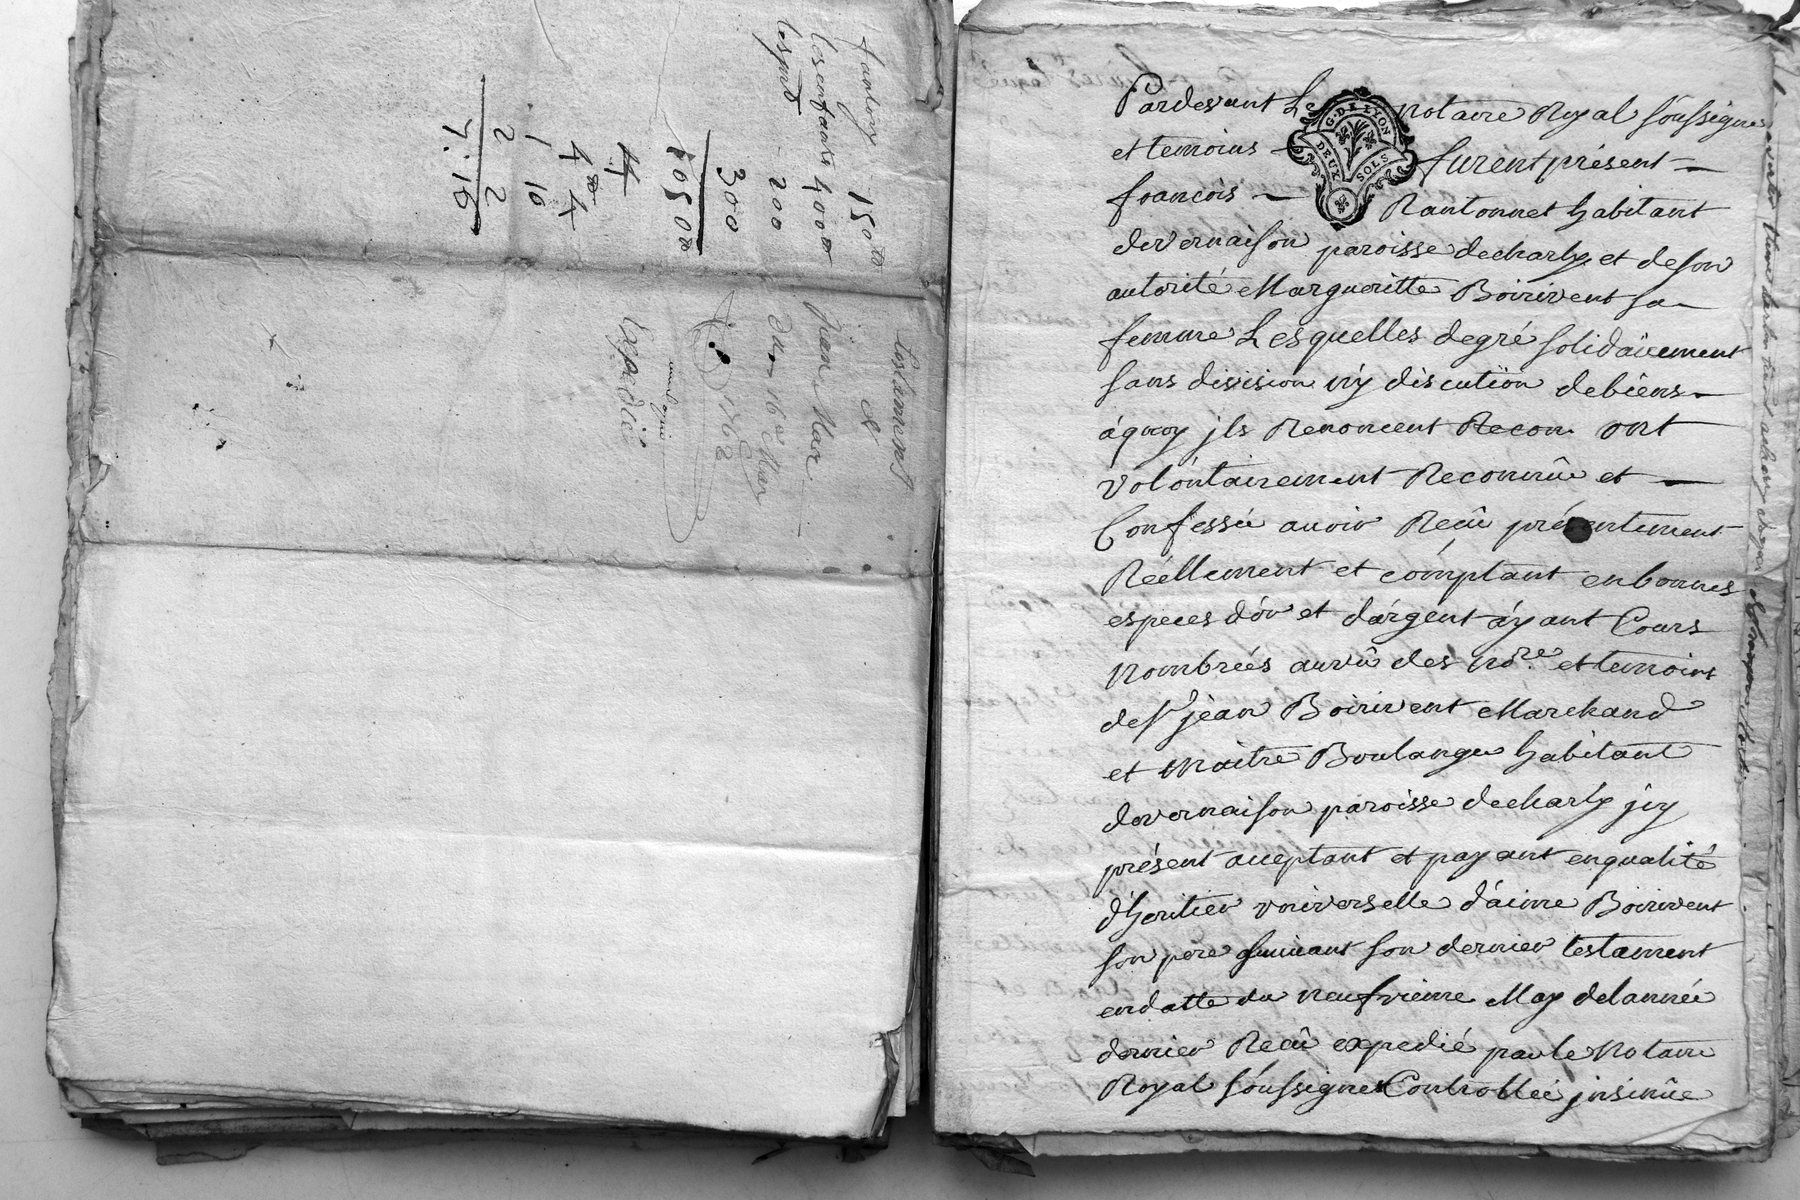 fanlony - 150₶
les enfants 4000₶
les p.
- 200
300
1050₶
4
4₶ 4
1 10
2 2
7 : 16
Testament
de
Jean Mar
Du 16 e Mar
1762
Expedié
Pardevant Le notaire Royal soussignes
et temoins furent présent
G. DE LYON
DEUX SOLS
francois Rantonnet habitant
devernaison paroisse decharly et deson
autorité Margueritte Boirivent sa
femme Lesquelles degré solidairement
sans division ny discution debiens
áquoy jls Renoncent Recon ont
volontairement Reconnûe et
Confessée avoir Reçû présentement
Réellement et cómptant enbonnes
especes d'ór et dárgent áyant Cours
nombrées auvû des no.re et temoins
de sr jean Boirivent Marchand
et maitre Boulanger habitant
devernaison paroisse decharly jcy
présent aceptant et payant enqualité
d'heritier vniverselle d'áime Boirivent
son pere suivant son dernier testament
endatte du neufvieme May delannée
dernier Reçû expedié par le Notaire
Royal soussigné Controllée jnsinûe